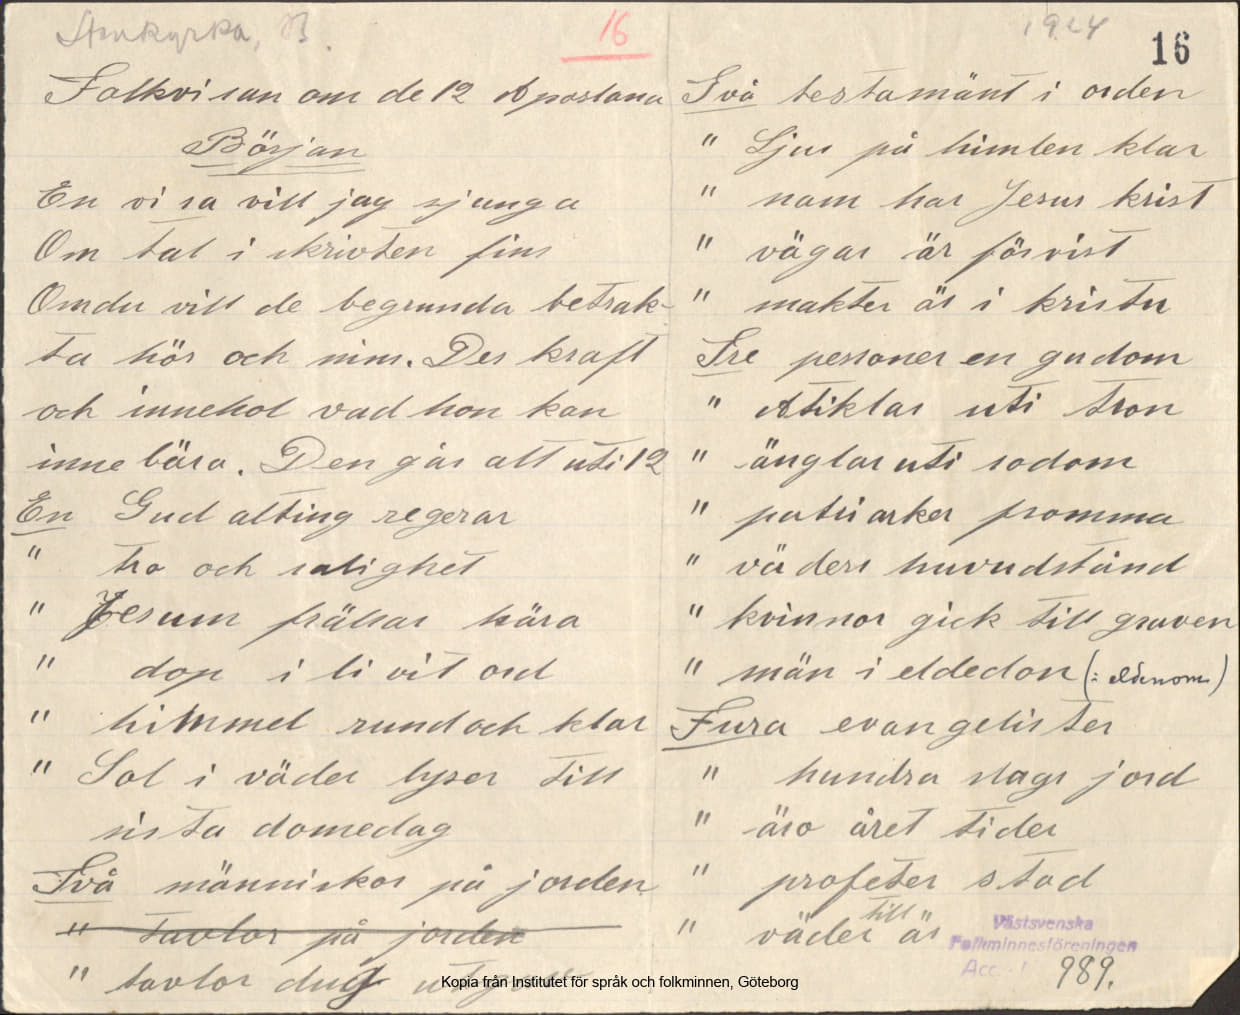 Stenkyrka, B.
16
1924
16
Folkvisan om de 12 Apostana
Början
En visa vill jag sjunga
Om tal i skrivten fins
Omdu vill de begrunda betrak-
ta hör och mins. Des kraft
och innehol vad hon kan
innebära. Den går alt uti 12
En Gud alting regerar
" tro och salighet
" Jesum frälsar kära
" dop i livit ord
" himmel rund och klar
" Sol i väder lyser till
sista domedag
Två människor på jorden
" tavlor på jorden
" tavlor dug
Två testamänt i orden
" Ljus på himlen klar
" nam har Jesus krist
" vägar är försvist
" makter är i kristu
Tre personer en gudom
" Atiklar uti tron
" änglar uti sodom
" patriarker fromma
" väders huvudstånd
" kvinnor gick till graven
" män i eldedon (: eldenom)
Fura evangelister
" hundra slags jord
" äro året tider
" profeter stod
" väder till är
Västsvenska
Folkminnesföreningen
Acc. 989.
Kopia från Institutet för språk och folkminnen, Göteborg